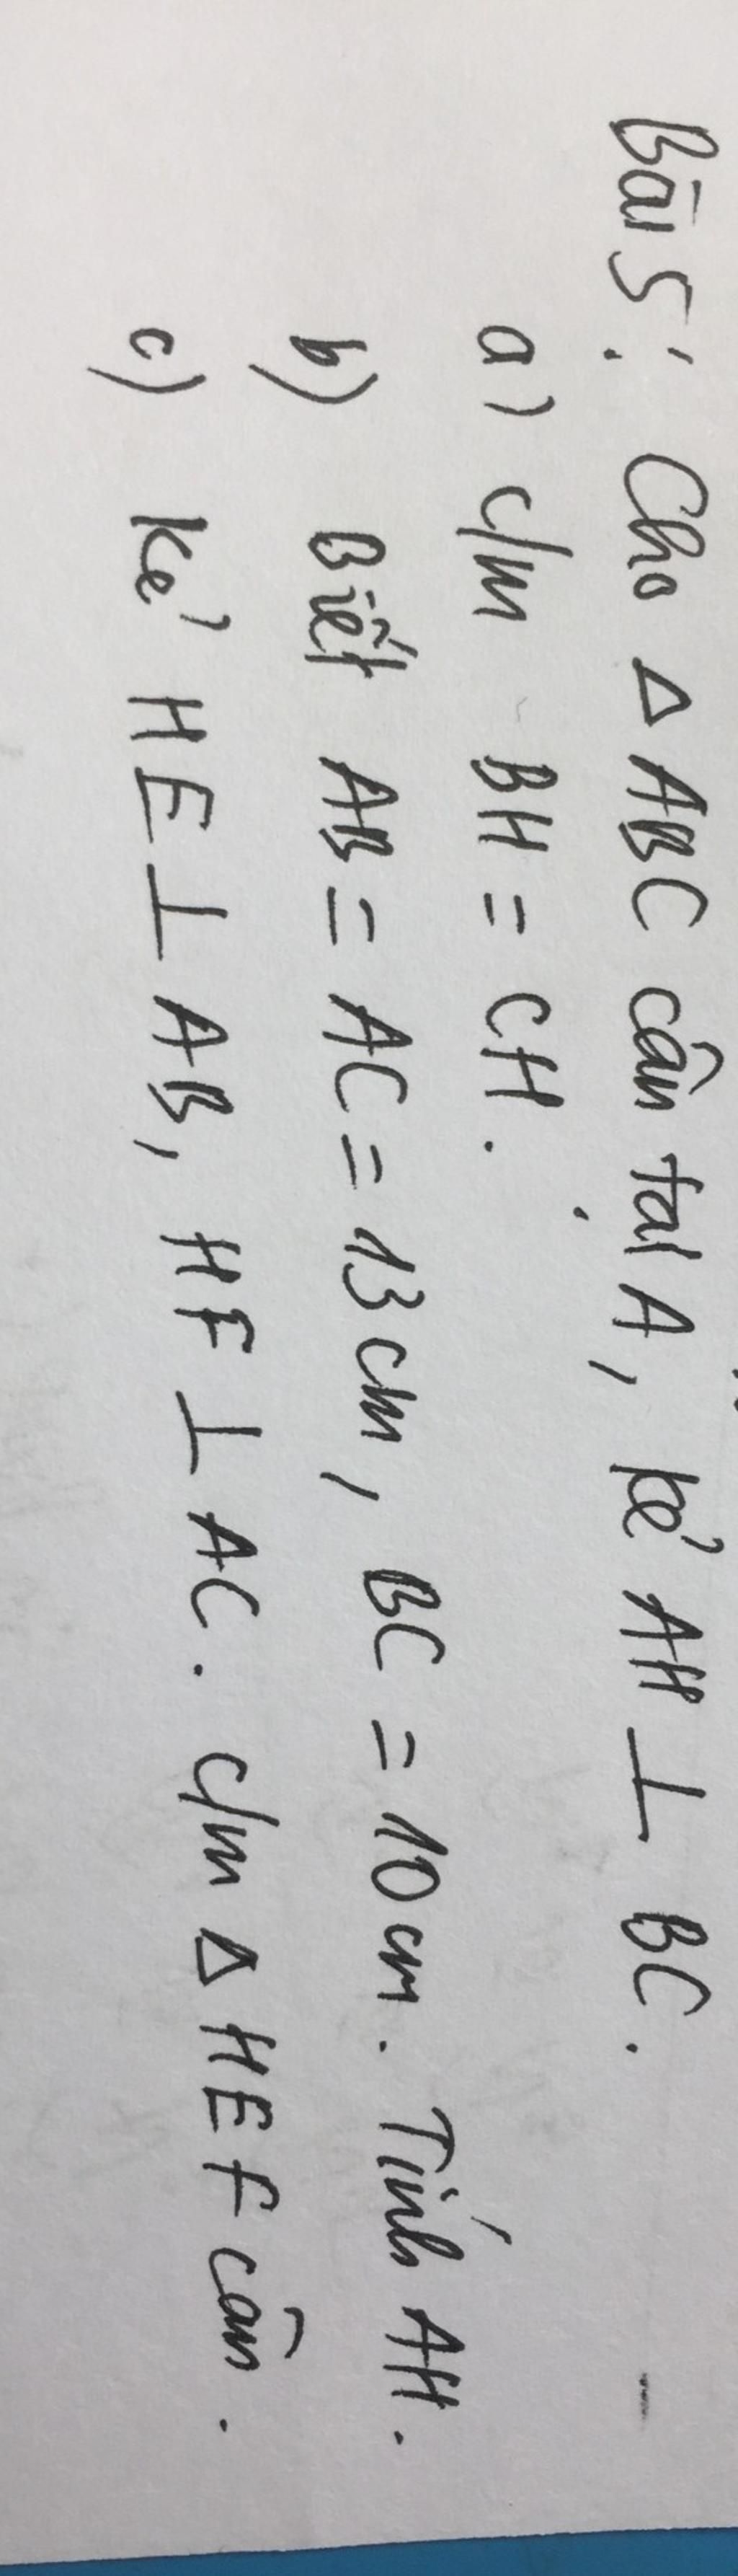 Bài 5: Cho Δ ABC cân tại A, kẻ AH ⊥ BC.
a) c/m BH = CH.
b) Biết AB = AC = 13 cm, BC = 10 cm. Tính AH.
c) Kẻ HE ⊥ AB, HF ⊥ AC. c/m Δ HEF cân.